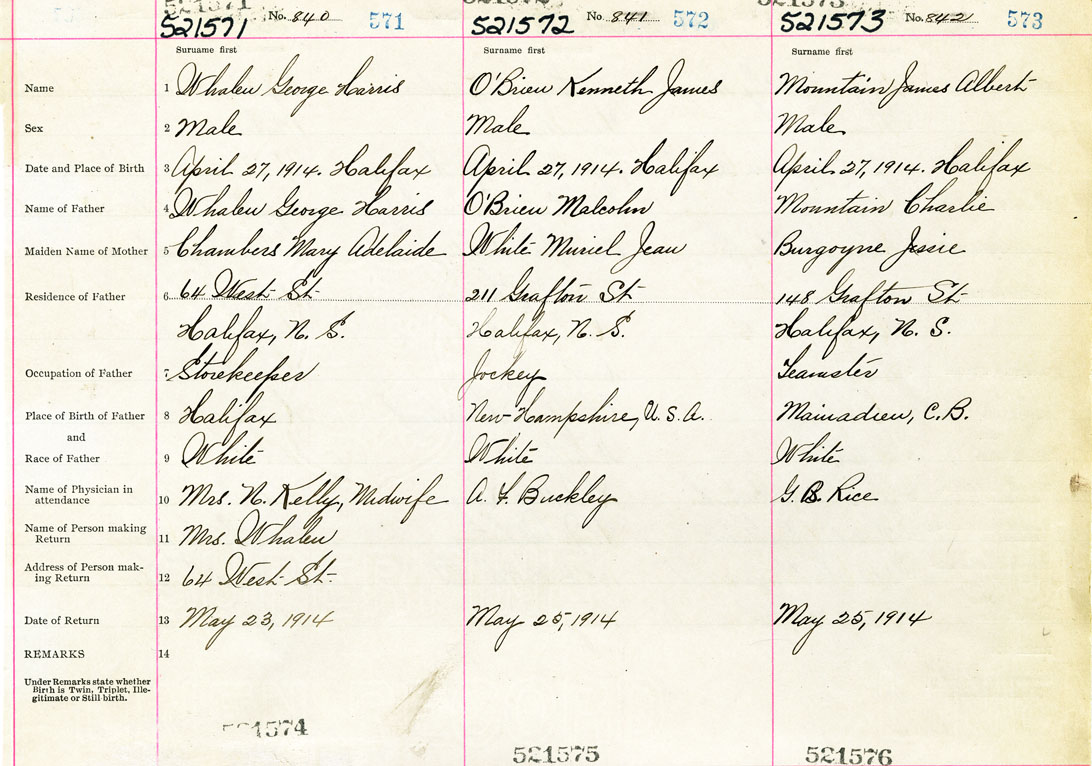 521571 No. 840 571 521572 No. 841 572 521573 No. 842 573
Surname first Surname first Surname first
Name 1 Whalen George Harris O'Brien Kenneth James Mountain James Albert
Sex 2 Male Male Male
Date and Place of Birth 3 April 27, 1914. Halifax April 27, 1914. Halifax April 27, 1914. Halifax
Name of Father 4 Whalen George Harris O'Brien Malcolm Mountain Charlie
Maiden Name of Mother 5 Chambers Mary Adelaide White Muriel Jean Burgoyne Jessie
Residence of Father 6 64 West St 211 Grafton St 148 Grafton St
Halifax, N. S. Halifax, N. S. Halifax, N. S.
Occupation of Father 7 Storekeeper Jockey Teamster
Place of Birth of Father 8 Halifax New Hampshire, U. S. A. Mainadieu, C. B.
and
Race of Father 9 White White White
Name of Physician in
attendance 10 Mrs. N. Kelly, Midwife A. F. Buckley G. B. Rice
Name of Person making
Return 11 Mrs. Whalen
Address of Person mak-
ing Return 12 64 West St.
Date of Return 13 May 23, 1914 May 25, 1914 May 25, 1914
REMARKS 14
Under Remarks state whether
Birth is Twin, Triplet, Ille-
gitimate or Still birth.
521574
521575 521576